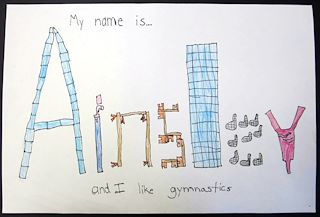 My name is...
Ainsley
and I like gymnastics